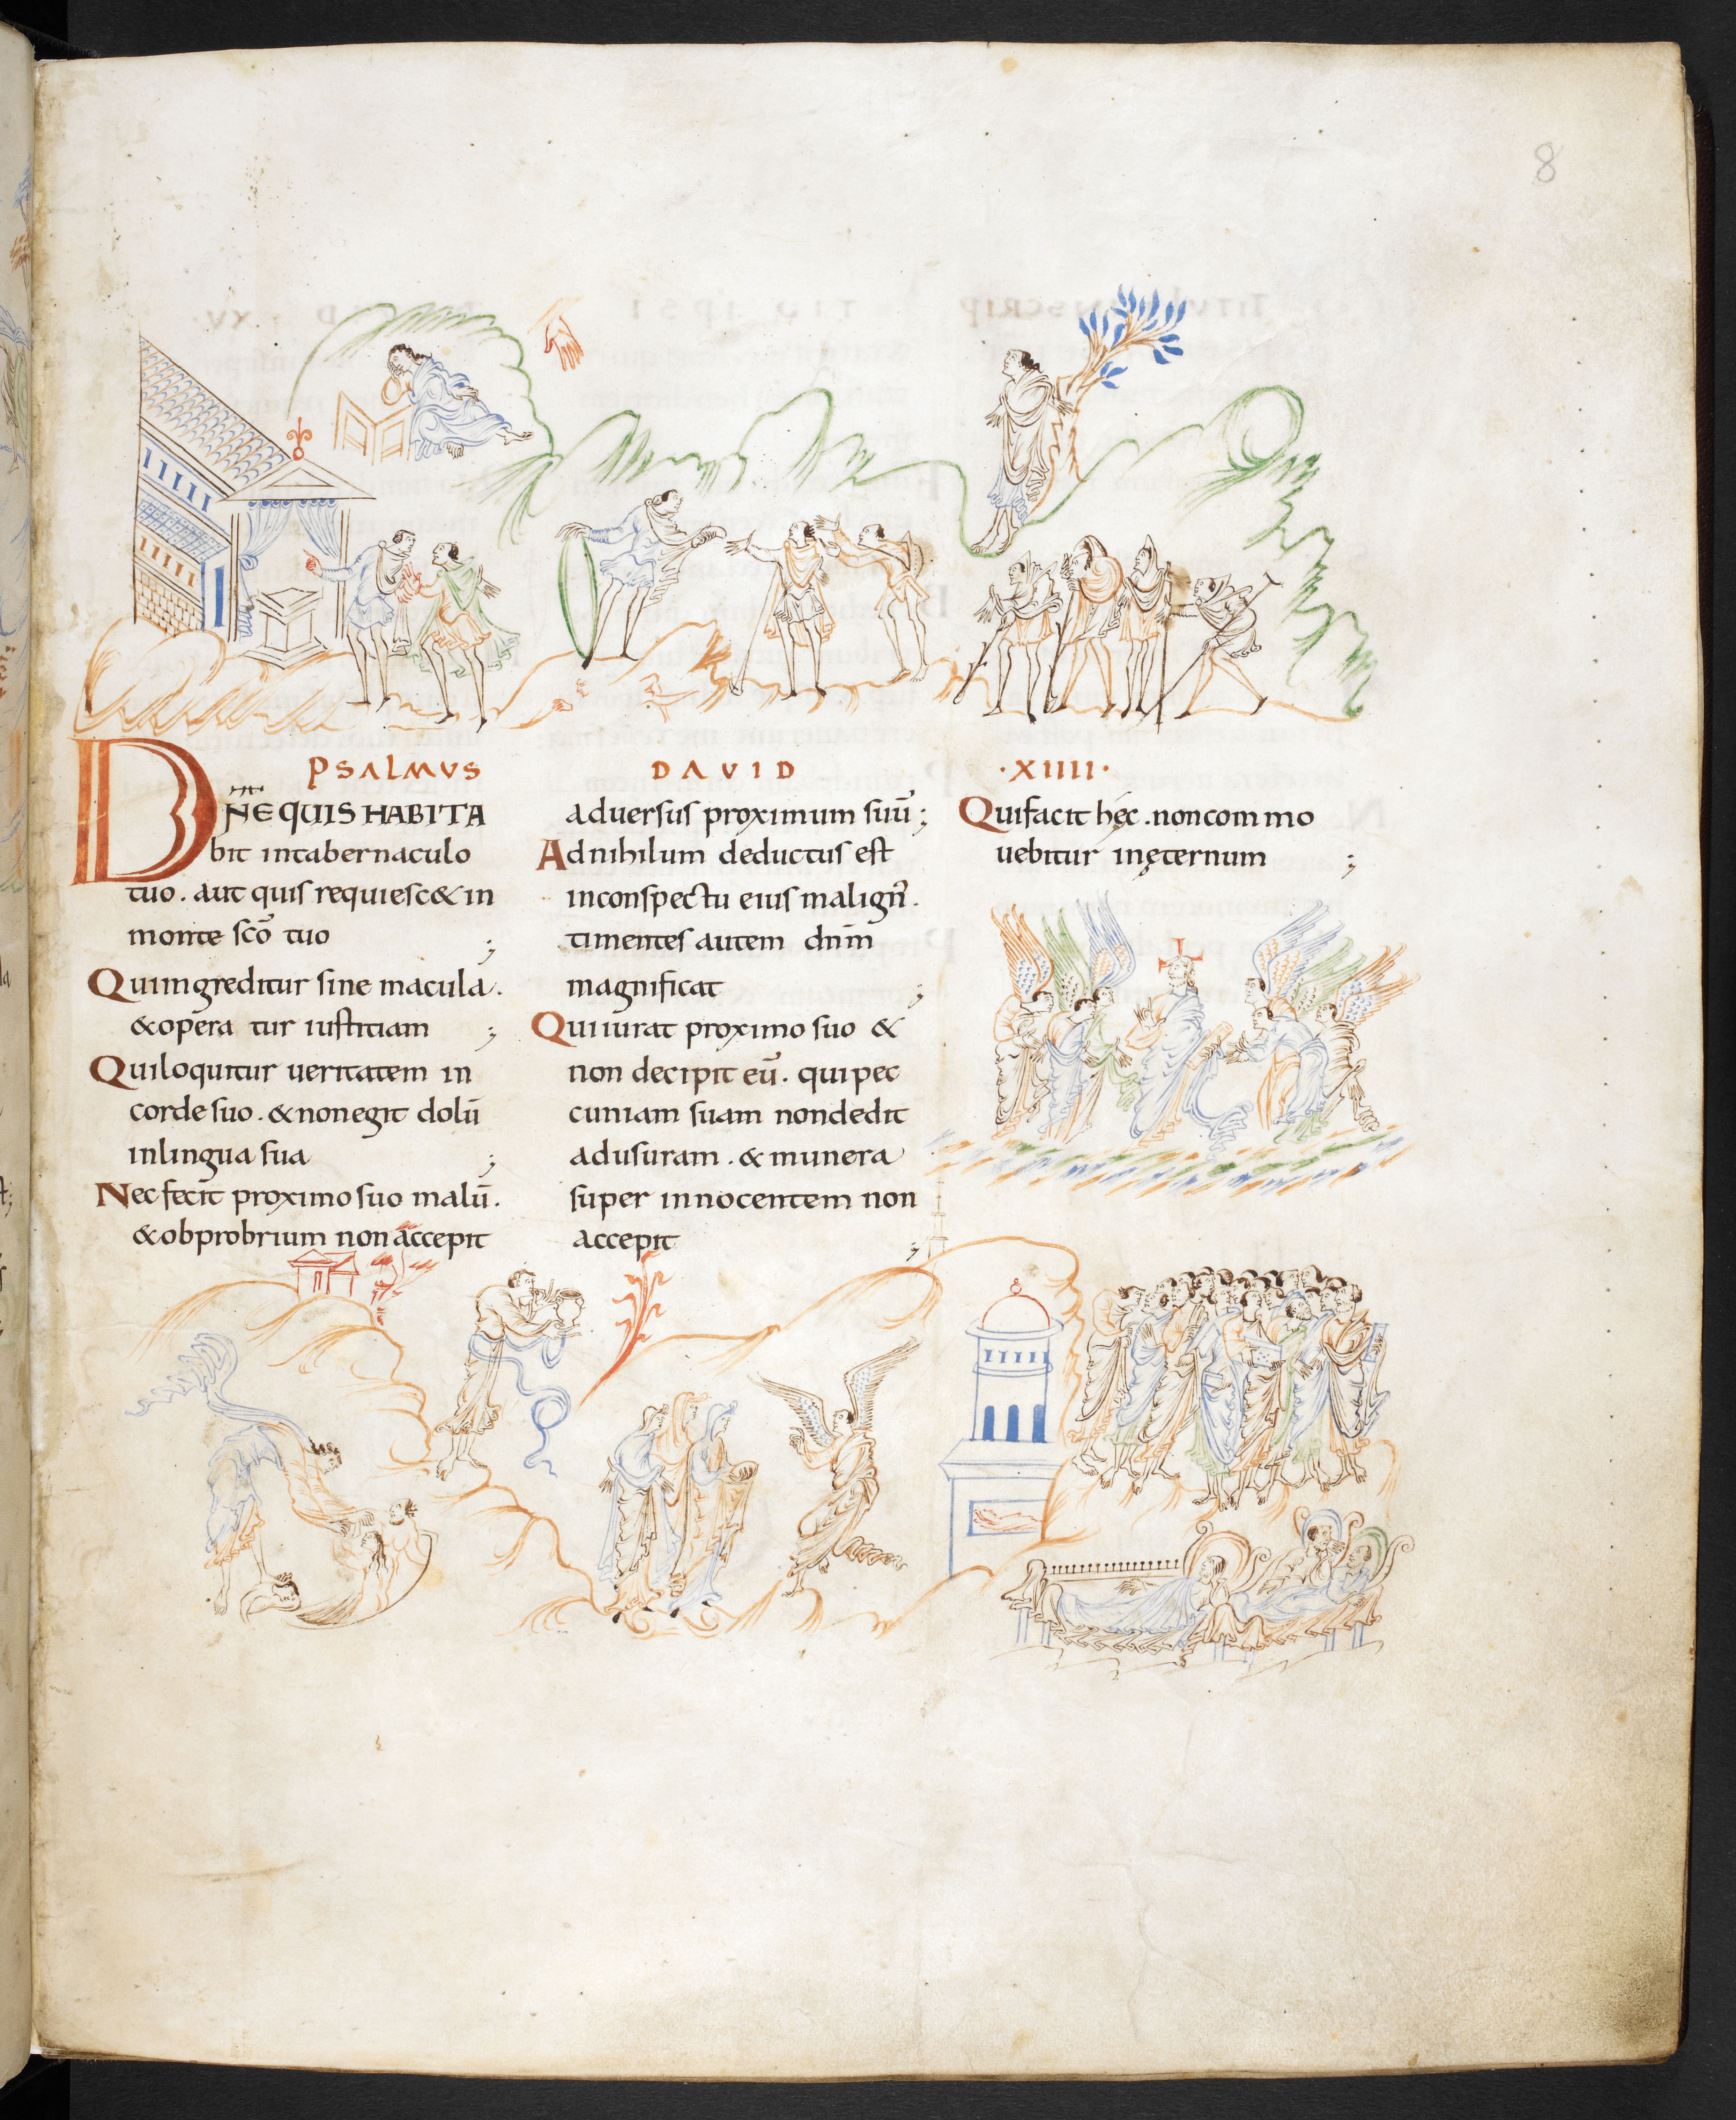 8
PSALMUS DAVID ·XIIII·
DÑE QUIS HABITA
bit intabernaculo
tuo. aut quis requiesc& in
monte scō tuo ;
Quiingreditur sine macula.
&opera tur iustitiam ;
Quiloquitur ueritatem in
corde suo. &nonegit dolū
inlingua sua ;
Nec fecit proximo suo malū.
&obprobrium non accepit
aduersus proximum suū ;
Adnihilum deductus est
inconspectu eius malign̄.
timentes autem dn̄m
magnificat ;
Quiiurat proximo suo &
non decipit eū. quipec
cuniam suam nondedit
adusuram. & munera
super innocentem non
accepit ;
Quifacit hęc. noncommo
uebitur inęternum ;